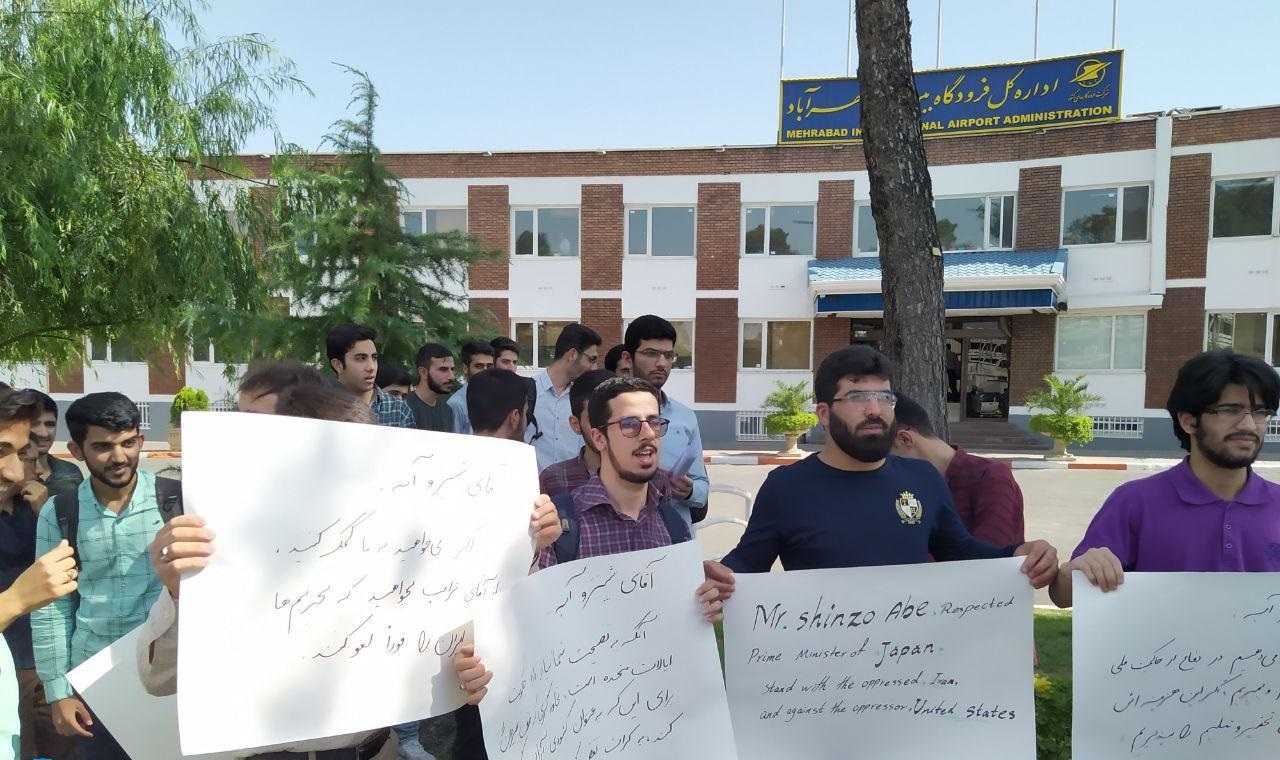 اداره کل فرودگاه
هرآباد
شرکت فرودگاه‌های کشور
MEHRABAD IN
NAL AIRPORT ADMINISTRATION
آقای شینزو آبه.
اگر می‌خواهید به ما کمک کنید،
از آقای ترامپ بخواهید که تحریم‌ها
ایران را فوراً لغو کند.
آقای شینزو آبه.
آنکه به نصیحت شما نیاز دارد
ایالات متحده است.
برای این که به عنوان کشوری
Mr. Shinzo Abe. Respected
Prime Minister of Japan.
Stand with the oppressed. Iran,
and against the oppressor, United States
آبه.
می‌دهیم در دفاع از حاکمیت ملی
تحقیر و تسلیم را